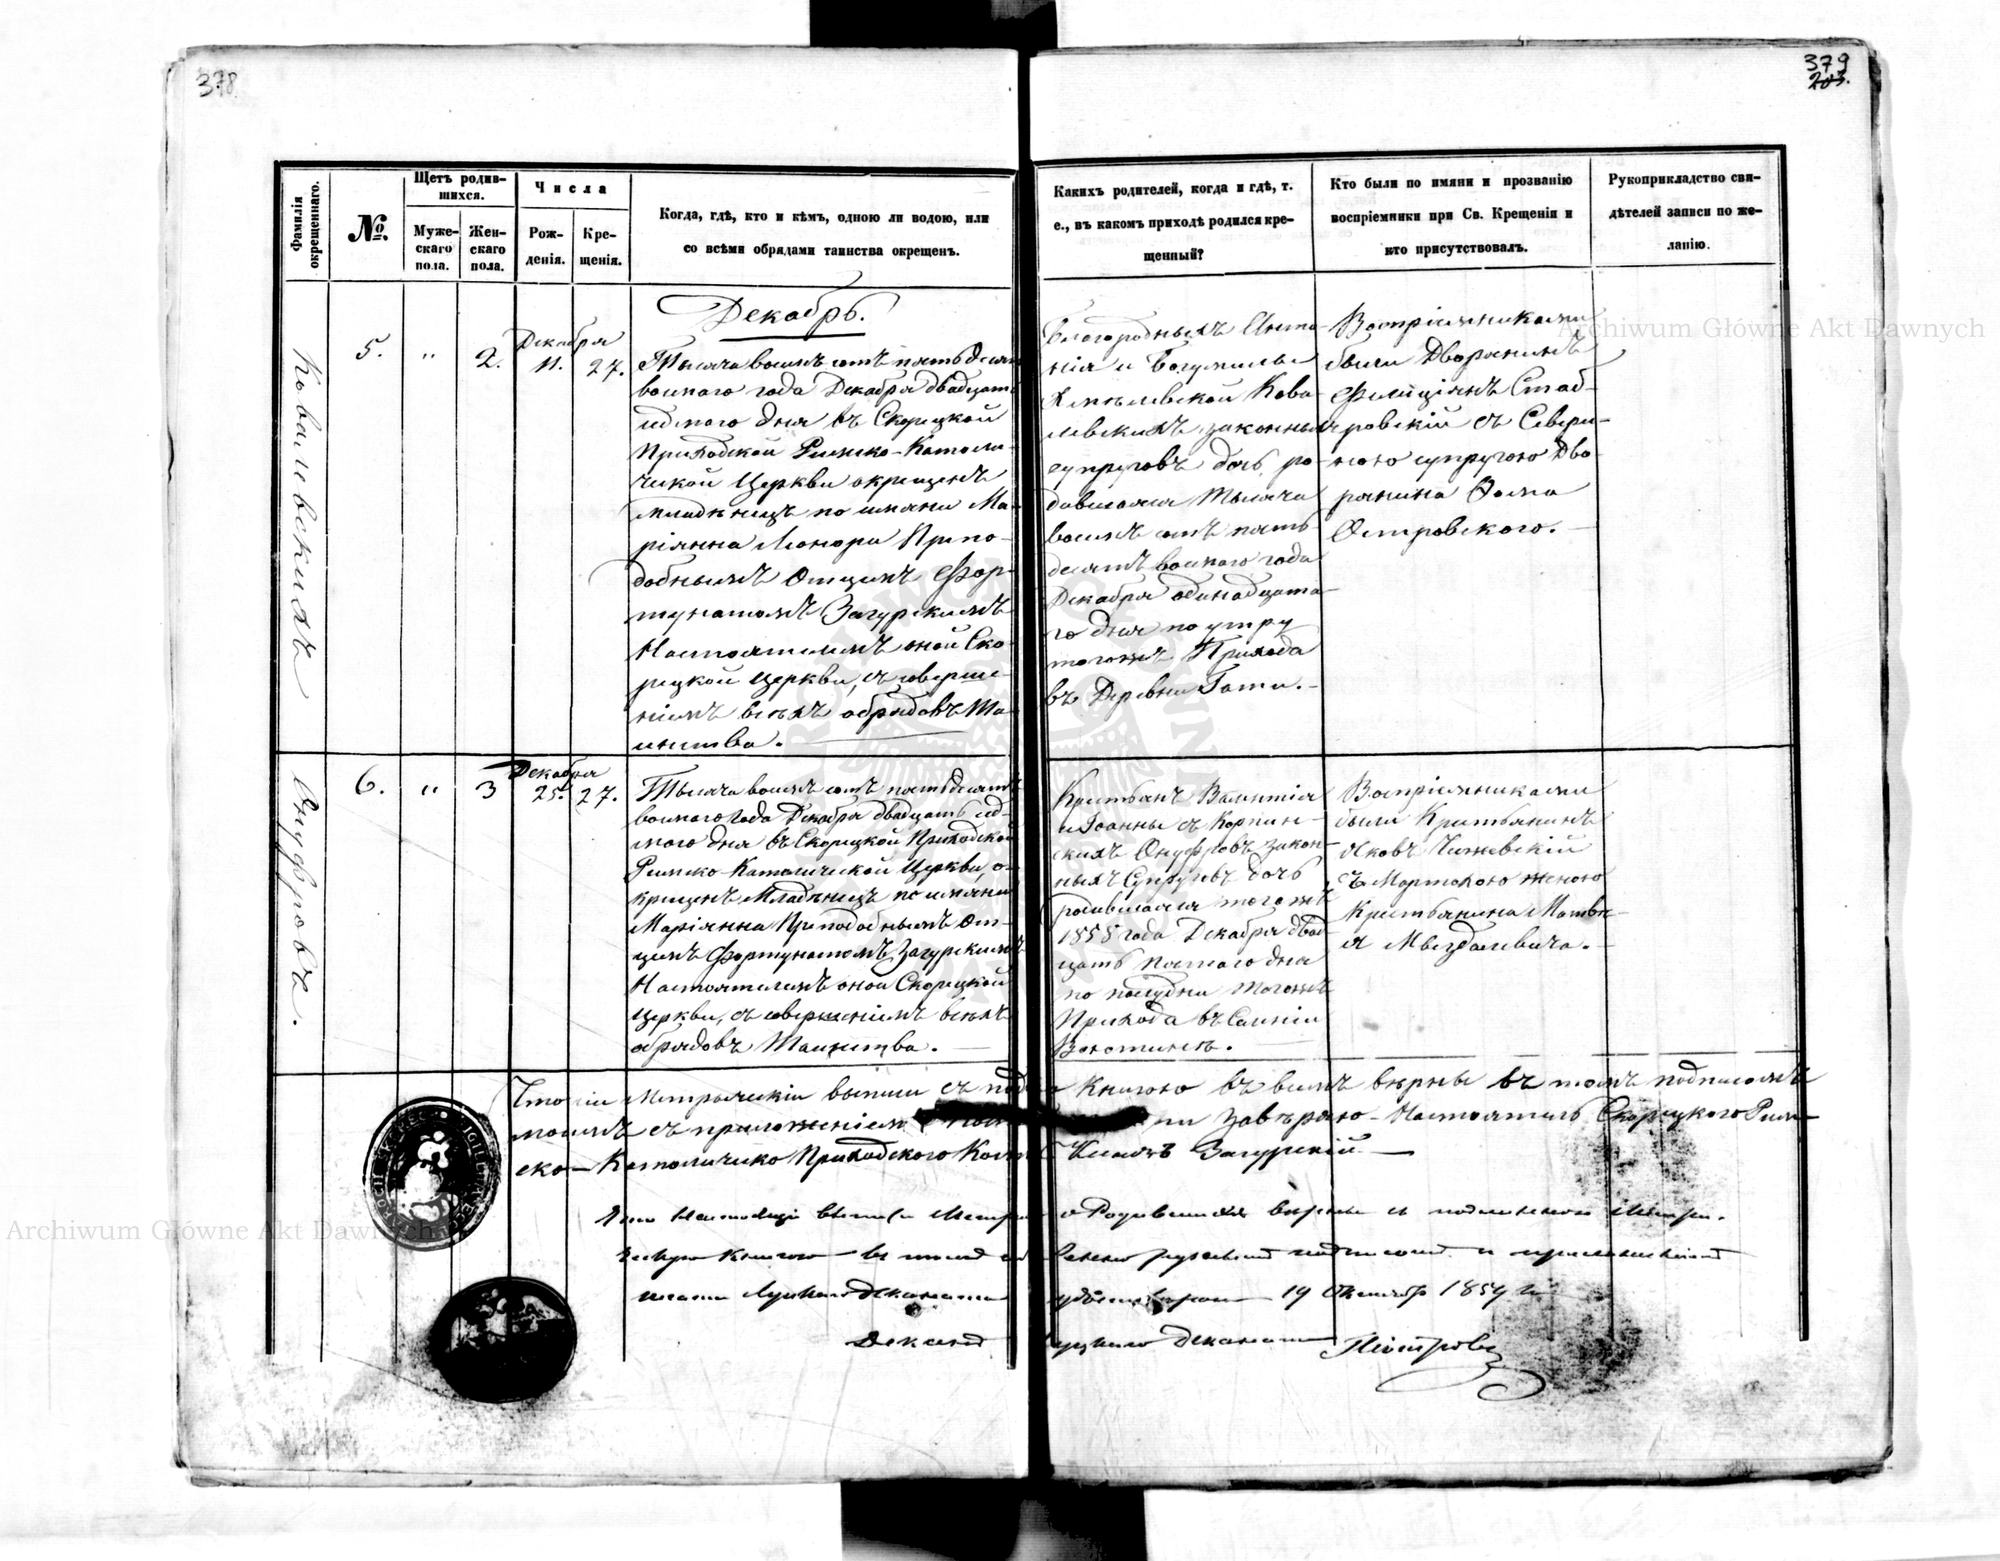 378
379
203.
Фамилія окрещеннаго.
№.
Щетъ родив-
шихся.
Муже-
скаго
пола.
Жен-
скаго
пола.
Числа
Рож-
денія.
Кре-
щенія.
Когда, гдѣ, кто и кѣмъ, одною ли водою, или
со всѣми обрядами таинства окрещенъ.
Какихъ родителей, когда и гдѣ, т.
е., въ какомъ приходѣ родился кре-
щенный?
Кто были по имяни и прозванію
воспріемники при Св. Крещеніи и
кто присутствовалъ.
Рукоприкладство сви-
дѣтелей записи по же-
ланію.
Ковалевскихъ
5.
"
2.
Декабря
11.
27.
Декабрь.
Тысяча восемь сотъ пятьдесятъ
восмаго года Декабря двадцать
седмого дня въ Скорецкой
Приходской Римско-Католи-
ческой Церкви окрещенъ
младѣнецъ по имяни Ма-
ріянна Леонора Препо-
добнымъ Отцемъ Фор-
тунатомъ Загурскимъ
Настоятелемъ оной Ско-
рецкой Церкви, съ соверше-
ніемъ всѣхъ обрядовъ Та-
инства.
Благородныхъ Анто-
нія и Богумилы
Хмѣлевской Кова-
левскихъ законныхъ
супруговъ дочь, ро-
дившаяся тысяча
восемь сотъ пять-
десятъ восмаго года
Декабря одинадцата-
го дня по утру
тогожъ Прихода
въ Деревни Гати.
Воспріемниками
были Дворянинъ
Фелиціянъ Стаб-
ровскій съ Севери-
ною супругою Дво-
рянина Фомы
Островского.
Онуфровъ.
6.
"
3
Декабря
25.
27.
Тысяча восемь сотъ пятьдесятъ
восмаго года Декабря двадцать сед-
мого дня въ Скорецкой Приходской
Римско-Католической Церкви, о-
крещенъ Младѣнецъ по имяни
Маріянна Преподобнымъ От-
цемъ Фортунатомъ Загурскимъ
Настоятелемъ оной Скорецкой
Церкви, съ совершеніемъ всѣхъ
обрядовъ Таинства.
Крестьянъ Валентія
и Іоанны съ Корпин-
скихъ Онуфровъ закон-
ныхъ Супруговъ дочь
родившаяся тогожъ
1858 года Декабря двад-
цать пятаго дня
по полудни тогожъ
Прихода въ Селеніи
Воспріемниками
были Крестьянинъ
Яковъ Чижевскій
съ Мартою женою
Крестьянина Матвѣ-
я Мыгдалевича.
Что сіи Метрическіи выписи съ под Книгою въ всемъ вѣрны въ томъ подписомъ
моимъ съ приложеніемъ завѣряю - Настоятель Скорецкого Рим-
ско-Католическо Приходского Ксендзъ Загурскій
Что Настоящі выписи Метри о Родившихся вѣрны съ подлинною Метри-
ческую Книгою въ томъ подписомъ и приложеніемъ
печати Луцкаго Деканата удостовѣряю 19 Октября 1859 г.
Деканъ Луцкаго Деканата
Archiwum Główne Akt Dawnych
Archiwum Główne Akt Dawnych